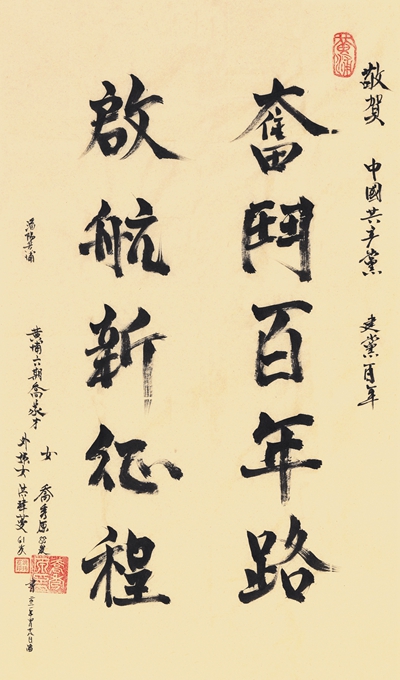 敬賀 中國共产黨 建黨百年
奮鬥百年路
啟航新征程
黄埔六期喬家才
女 喬秀
外